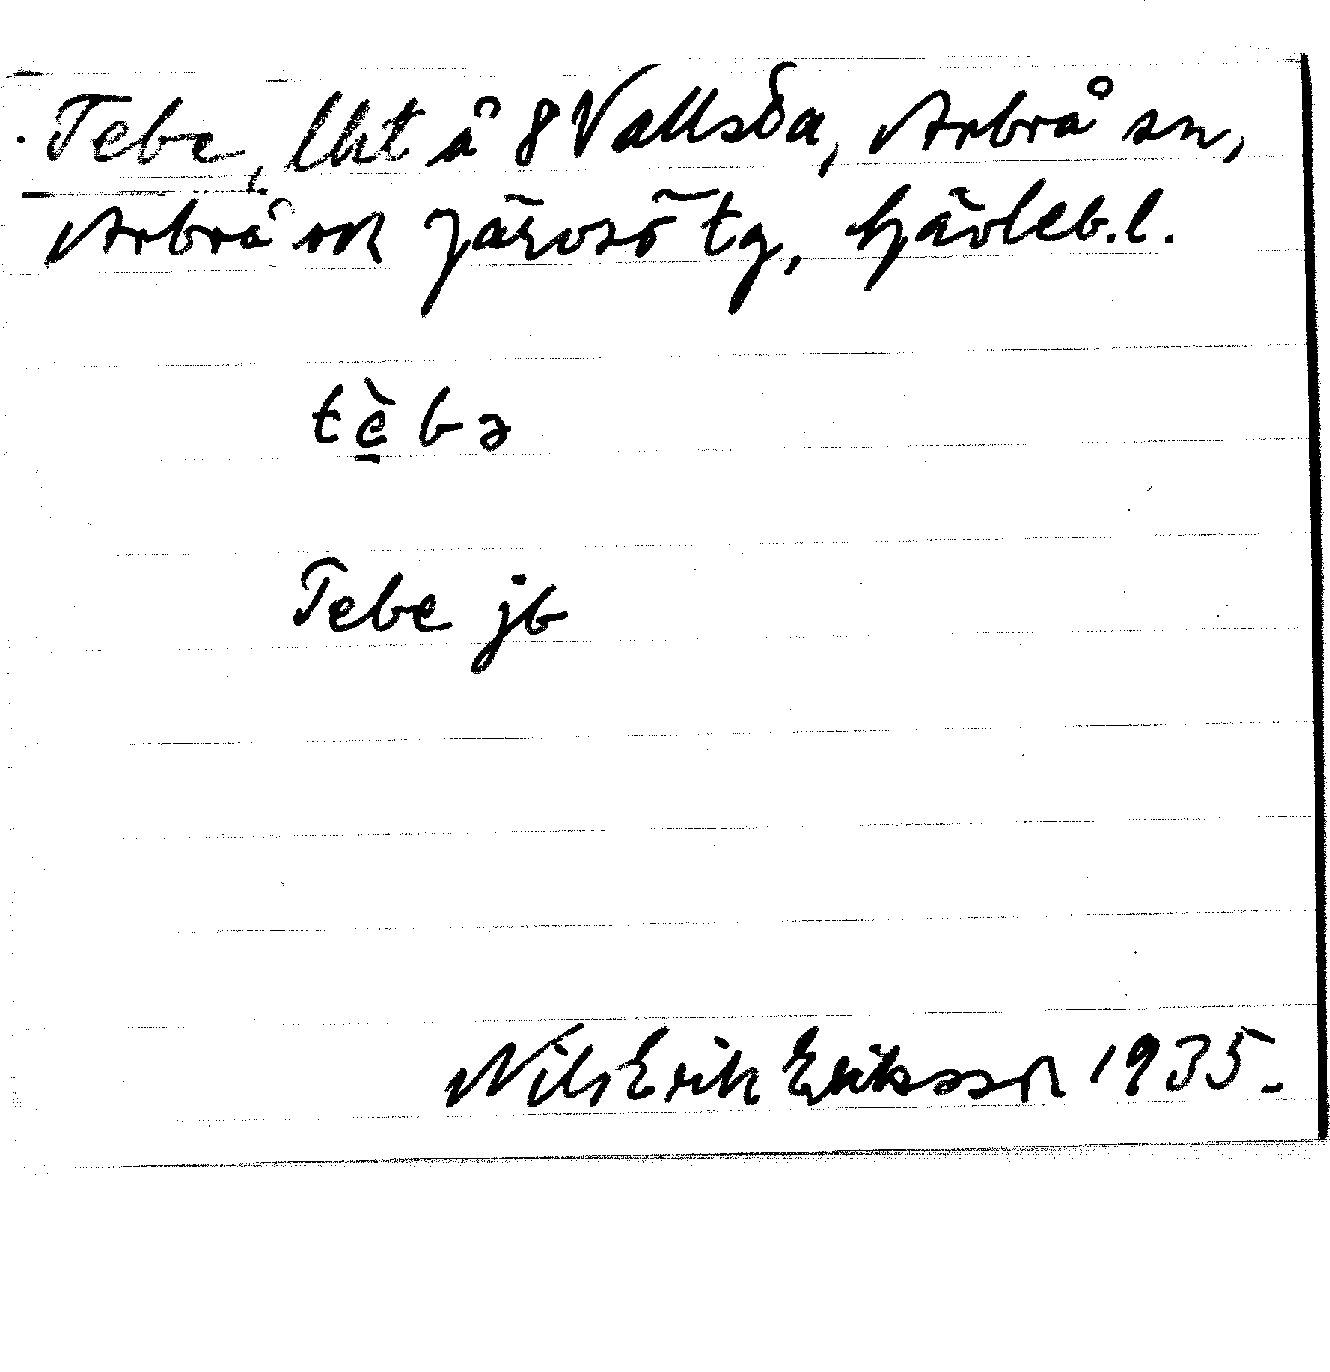 Tebe, lht å 8 Vallsta, Arbrå sn,
Arbrå ock Järvsö tg, Gävleb.l.
tèbə
Tebe jb
Nils Erik Eriksson 1935.